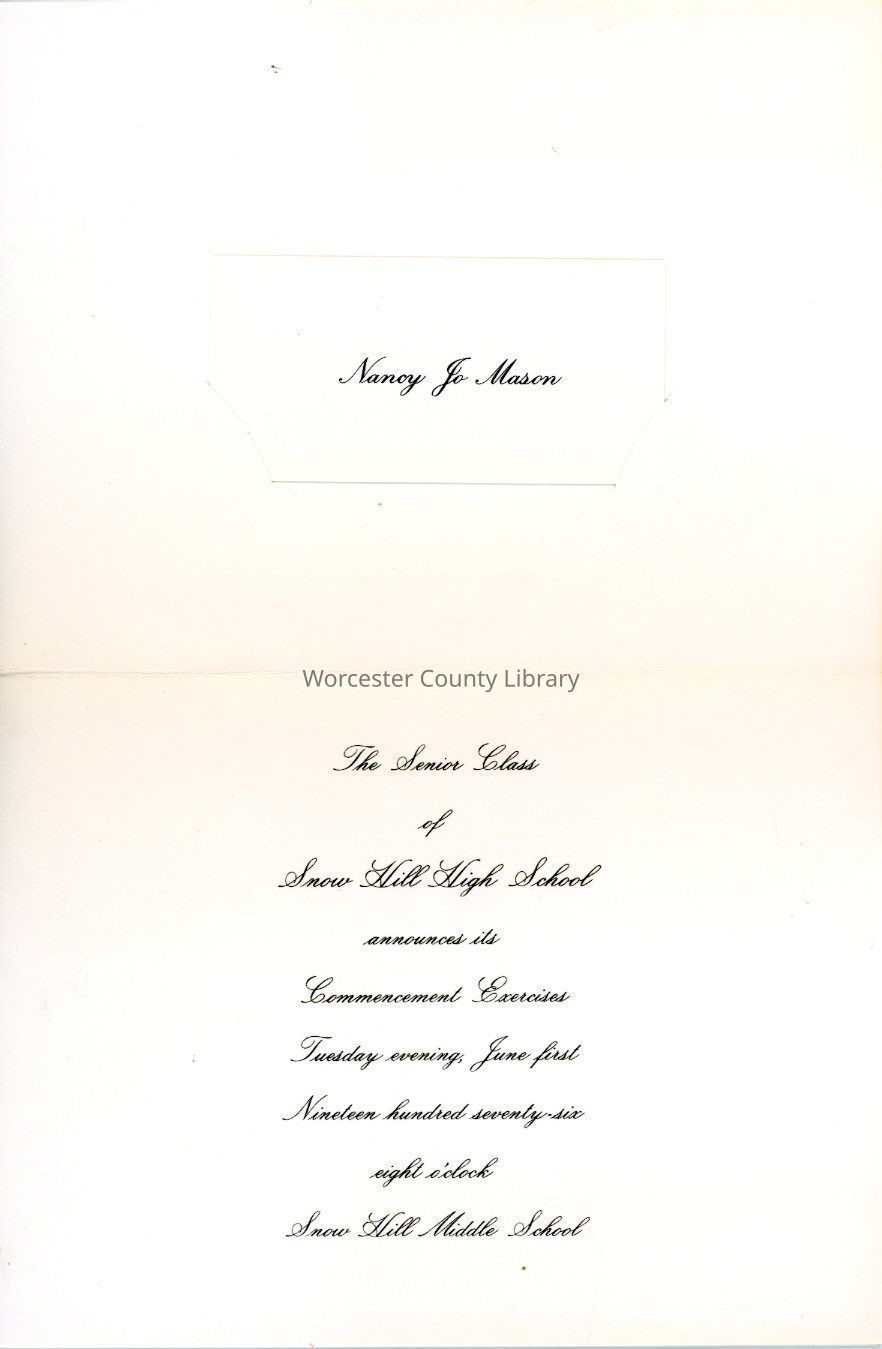 Nancy Jo Mason
Worcester County Library
The Senior Class
of
Snow Hill High School
announces its
Commencement Exercises
Tuesday evening, June first
Nineteen hundred seventy-six
eight o'clock
Snow Hill Middle School